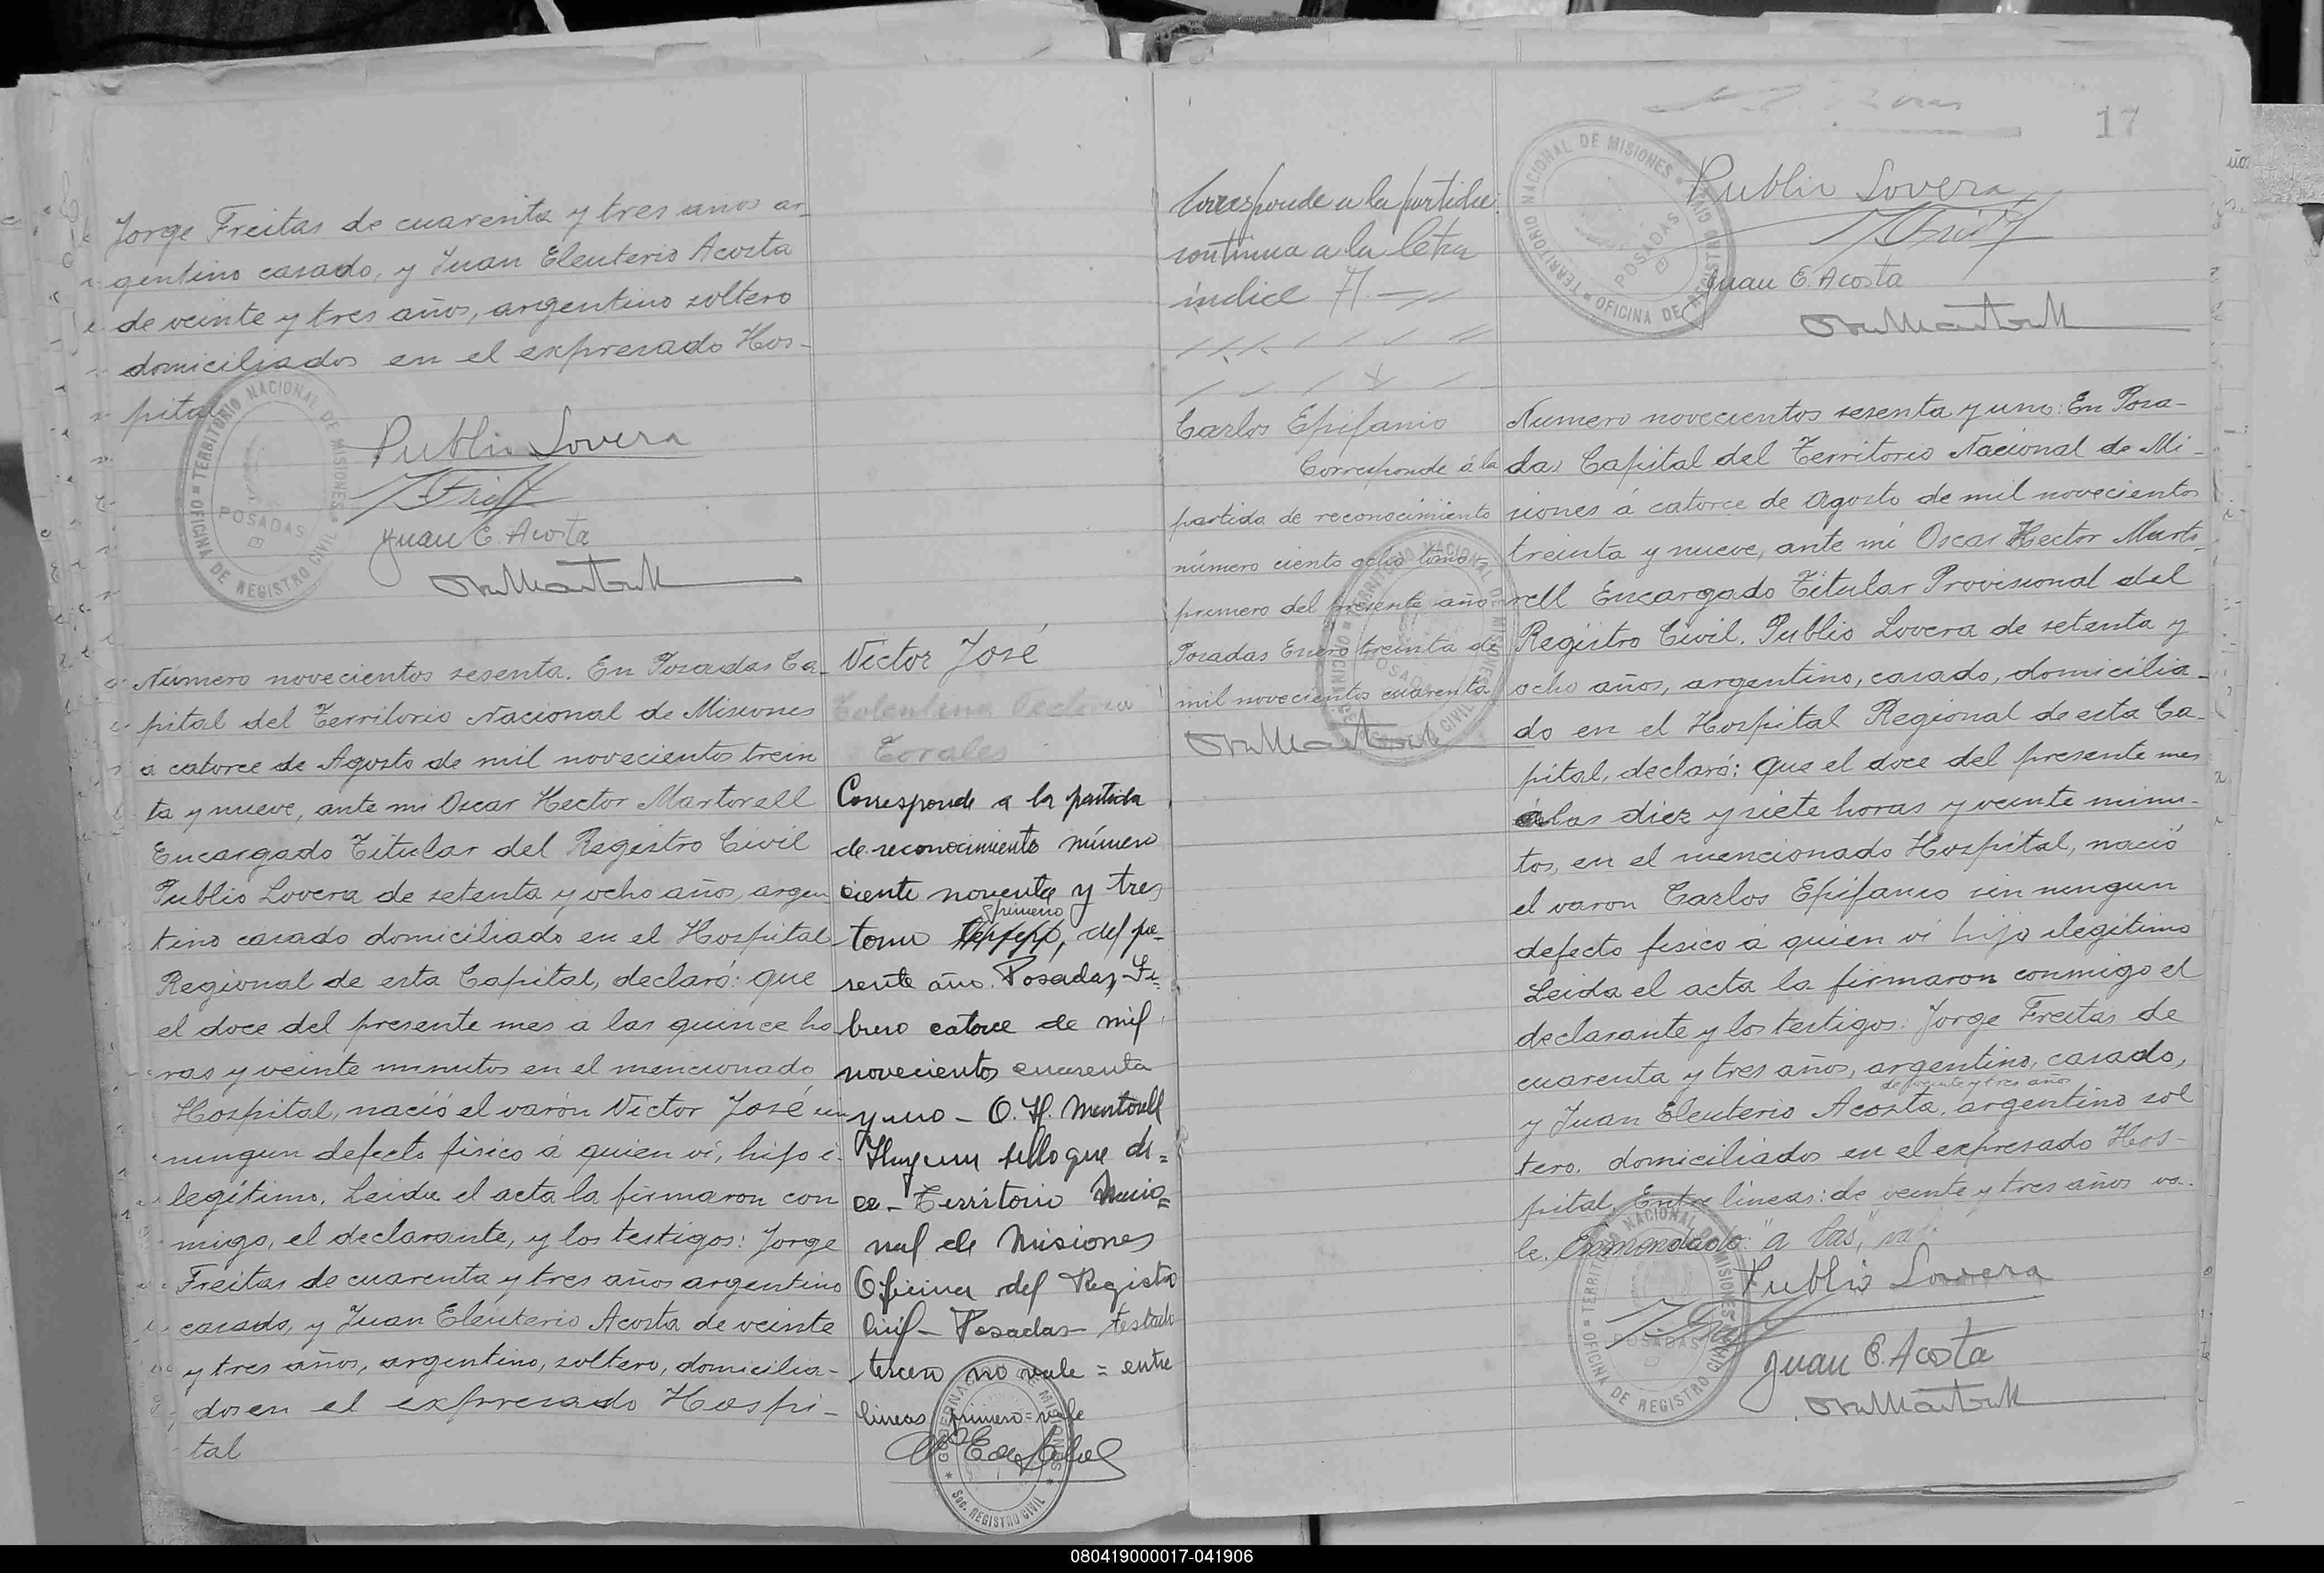 Jorge Freitas de cuarenta y tres años ar-
gentino casado, y Juan Eleuterio Acosta
de veinte y tres años, argentino soltero
domiciliados en el expresado Hos-
pital
Publio Lovera
Juan E. Acosta
OFICINA DE REGISTRO CIVIL TERRITORIO NACIONAL DE MISIONES
POSADAS
Número novecientos sesenta. En Posadas Ca-
pital del Territorio Nacional de Misiones
a catorce de Agosto de mil novecientos trein
ta y nueve, ante mi Oscar Hector Martorell
Encargado Titular del Registro Civil
Publio Lovera de setenta y ocho años, argen
tino casado domiciliado en el Hospital
Regional de esta Capital, declaró: que
el doce del presente mes a las quince ho
ras y veinte minutos en el mencionado
Hospital, nació el varón Victor José sin
ningun defecto fisico á quien vi, hijo i-
legítimo. Leida el acta la firmaron con
migo, el declarante, y los testigos: Jorge
Freitas de cuarenta y tres años argentino
casado, y Juan Eleuterio Acosta de veinte
y tres años, argentino, soltero, domicilia-
dos en el expresado Hospi-
tal
Victor José
Tolentina Victoria
Torales
Corresponde a la partida
de reconocimiento número
ciento noventa y tres
primero
tomo tercero, del pre-
sente año. Posadas, Fe-
brero catorce de mil
novecientos cuarenta
y uno - O. H. Martorell
Hay un sello que di=
ce - Territorio Nacio=
nal de Misiones
Oficina del Registro
Civil - Posadas - testado
tercero no vale = entre
lineas primero = vale
GOBERNACION DE MISIONES
Sec. REGISTRO CIVIL
17
Corresponde a la partida
continua a la letra
indice
OFICINA DE REGISTRO CIVIL TERRITORIO NACIONAL DE MISIONES
POSADAS
Publio Lovera
Juan E. Acosta
Carlos Epifanio
Corresponde á la
partida de reconocimiento
número ciento ocho tomo
primero del presente año
Posadas Enero treinta de
mil novecientos cuarenta
Numero novecientos sesenta y uno: En Posa-
das Capital del Territorio Nacional de Mi-
siones á catorce de Agosto de mil novecientos
treinta y nueve, ante mi Oscar Hector Marto-
rell Encargado Titular Provisional del
Registro Civil. Publio Lovera de setenta y
ocho años, argentino, casado, domicilia-
do en el Hospital Regional de esta Ca-
pital, declaró: que el doce del presente mes
a las diez y siete horas y veinte minu-
tos, en el mencionado Hospital, nació
el varon Carlos Epifanio sin ningun
defecto fisico á quien vi hijo ilegítimo
Leida el acta la firmaron conmigo el
declarante y los testigos: Jorge Freitas de
cuarenta y tres años, argentino, casado,
de veinte y tres años
y Juan Eleuterio Acosta, argentino sol
tero, domiciliados en el expresado Hos-
pital. Entre lineas: de veinte y tres años va-
le. Enmendado: "a las", va
Publio Lovera
Juan E. Acosta
OFICINA DE REGISTRO CIVIL TERRITORIO NACIONAL DE MISIONES
POSADAS
080419000017-041906